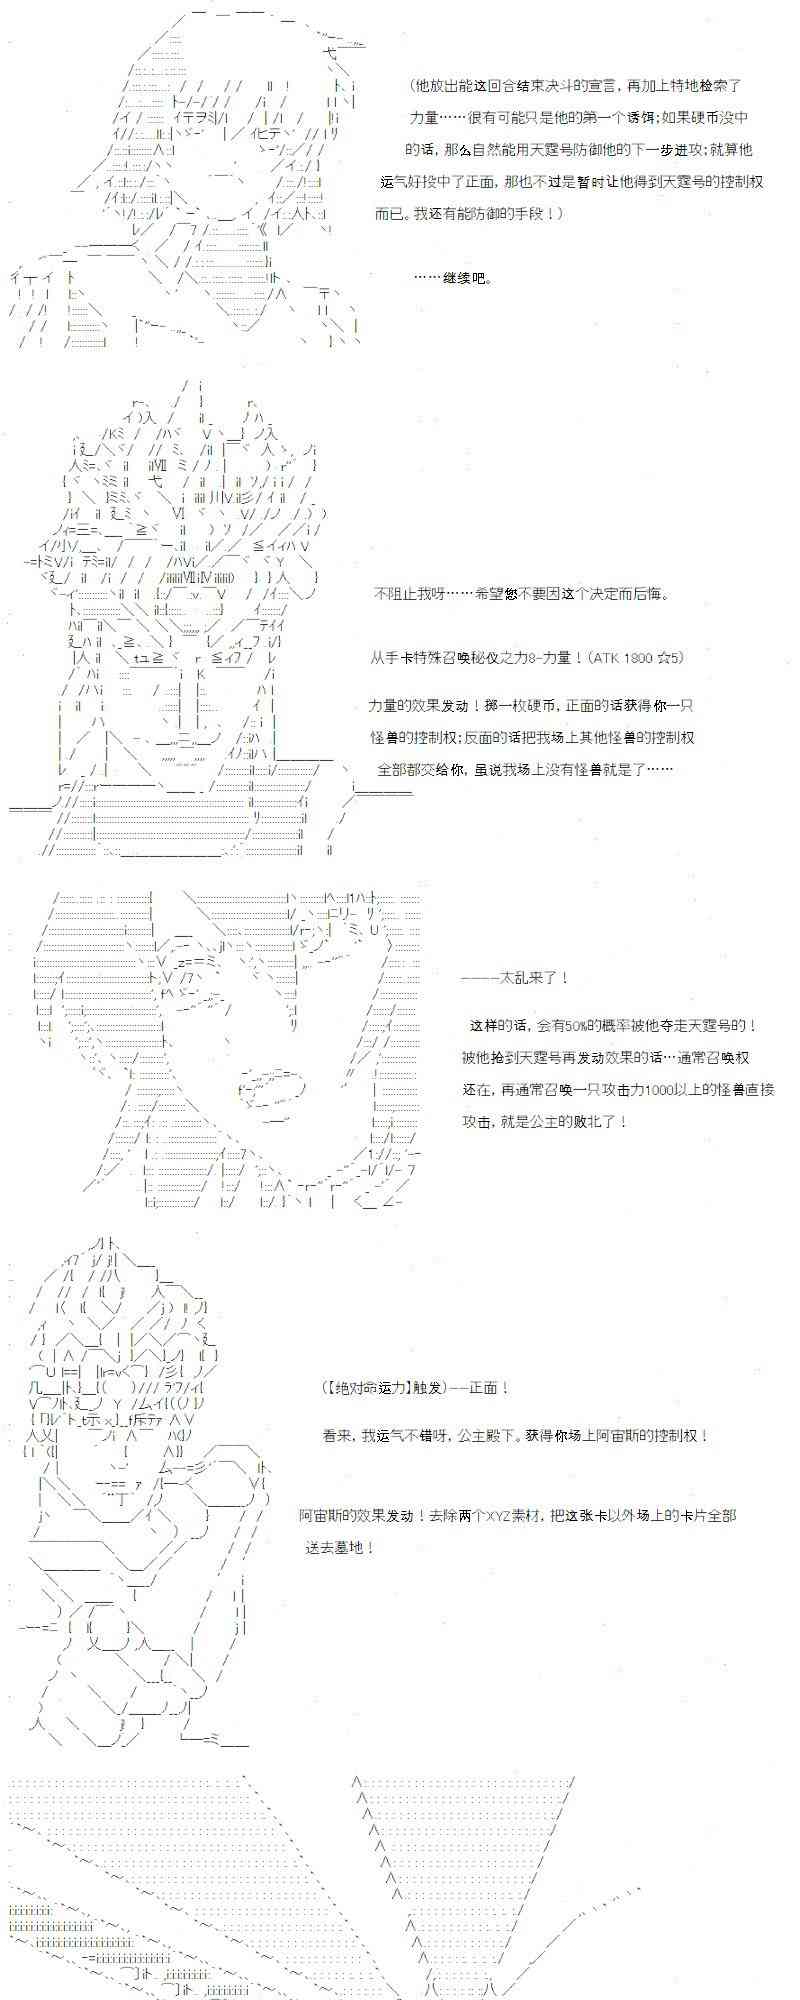 (他放出能这回合结束决斗的宣言, 再加上特地检索了
力量……很有可能只是他的第一个诱饵;如果硬币没中
的话, 那么自然能用天霆号防御他的下一步进攻;就算他
运气好投中了正面, 那也不过是暂时让他得到天霆号的控制权
而已。我还有能防御的手段!)
……继续吧。
不阻止我呀……希望您不要因这个决定而后悔。
从手卡特殊召唤秘仪之力8-力量!(ATK 1800 ☆5)
力量的效果发动!掷一枚硬币, 正面的话获得你一只
怪兽的控制权;反面的话把我场上其他怪兽的控制权
全部都交给你, 虽说我场上没有怪兽就是了……
————太乱来了!
这样的话, 会有50%的概率被他夺走天霆号的!
被他抢到天霆号再发动效果的话…通常召唤权
还在, 再通常召唤一只攻击力1000以上的怪兽直接
攻击, 就是公主的败北了!
(【绝对命运力】触发)——正面!
看来, 我运气不错呀, 公主殿下。获得你场上阿宙斯的控制权!
阿宙斯的效果发动!去除两个XYZ素材, 把这张卡以外场上的卡片全部
送去墓地!